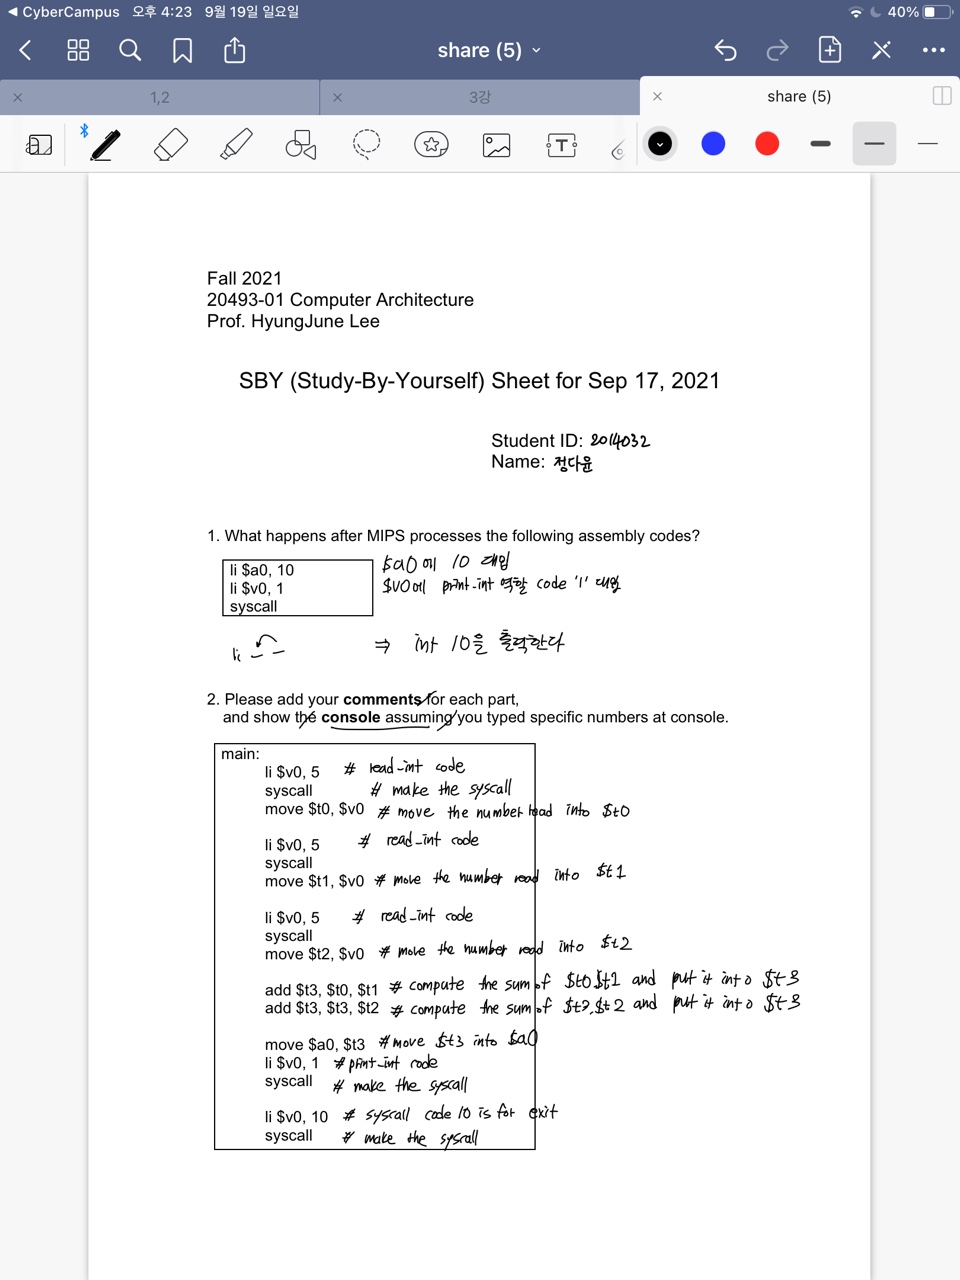 ◀ CyberCampus 오후 4:23 9월 19일 일요일 40%
share (5)
1,2 3강 share (5)
Fall 2021
20493-01 Computer Architecture
Prof. HyungJune Lee
SBY (Study-By-Yourself) Sheet for Sep 17, 2021
Student ID: 2014032
Name: 정다윤
1. What happens after MIPS processes the following assembly codes?
li $a0, 10 $a0에 10 대입
li $v0, 1 $v0에 print-int 역할 code '1' 대입
syscall
li ⇒ int 10을 출력한다
2. Please add your comments for each part,
and show the console assuming you typed specific numbers at console.
main:
li $v0, 5 # read-int code
syscall # make the syscall
move $t0, $v0 # move the number read into $t0
li $v0, 5 # read_int code
syscall
move $t1, $v0 # move the number read into $t1
li $v0, 5 # read_int code
syscall
move $t2, $v0 # move the number read into $t2
add $t3, $t0, $t1 # compute the sum of $t0,$t1 and put it into $t3
add $t3, $t3, $t2 # compute the sum of $t3,$t2 and put it into $t3
move $a0, $t3 # move $t3 into $a0
li $v0, 1 # print_int code
syscall # make the syscall
li $v0, 10 # syscall code 10 is for exit
syscall # make the syscall